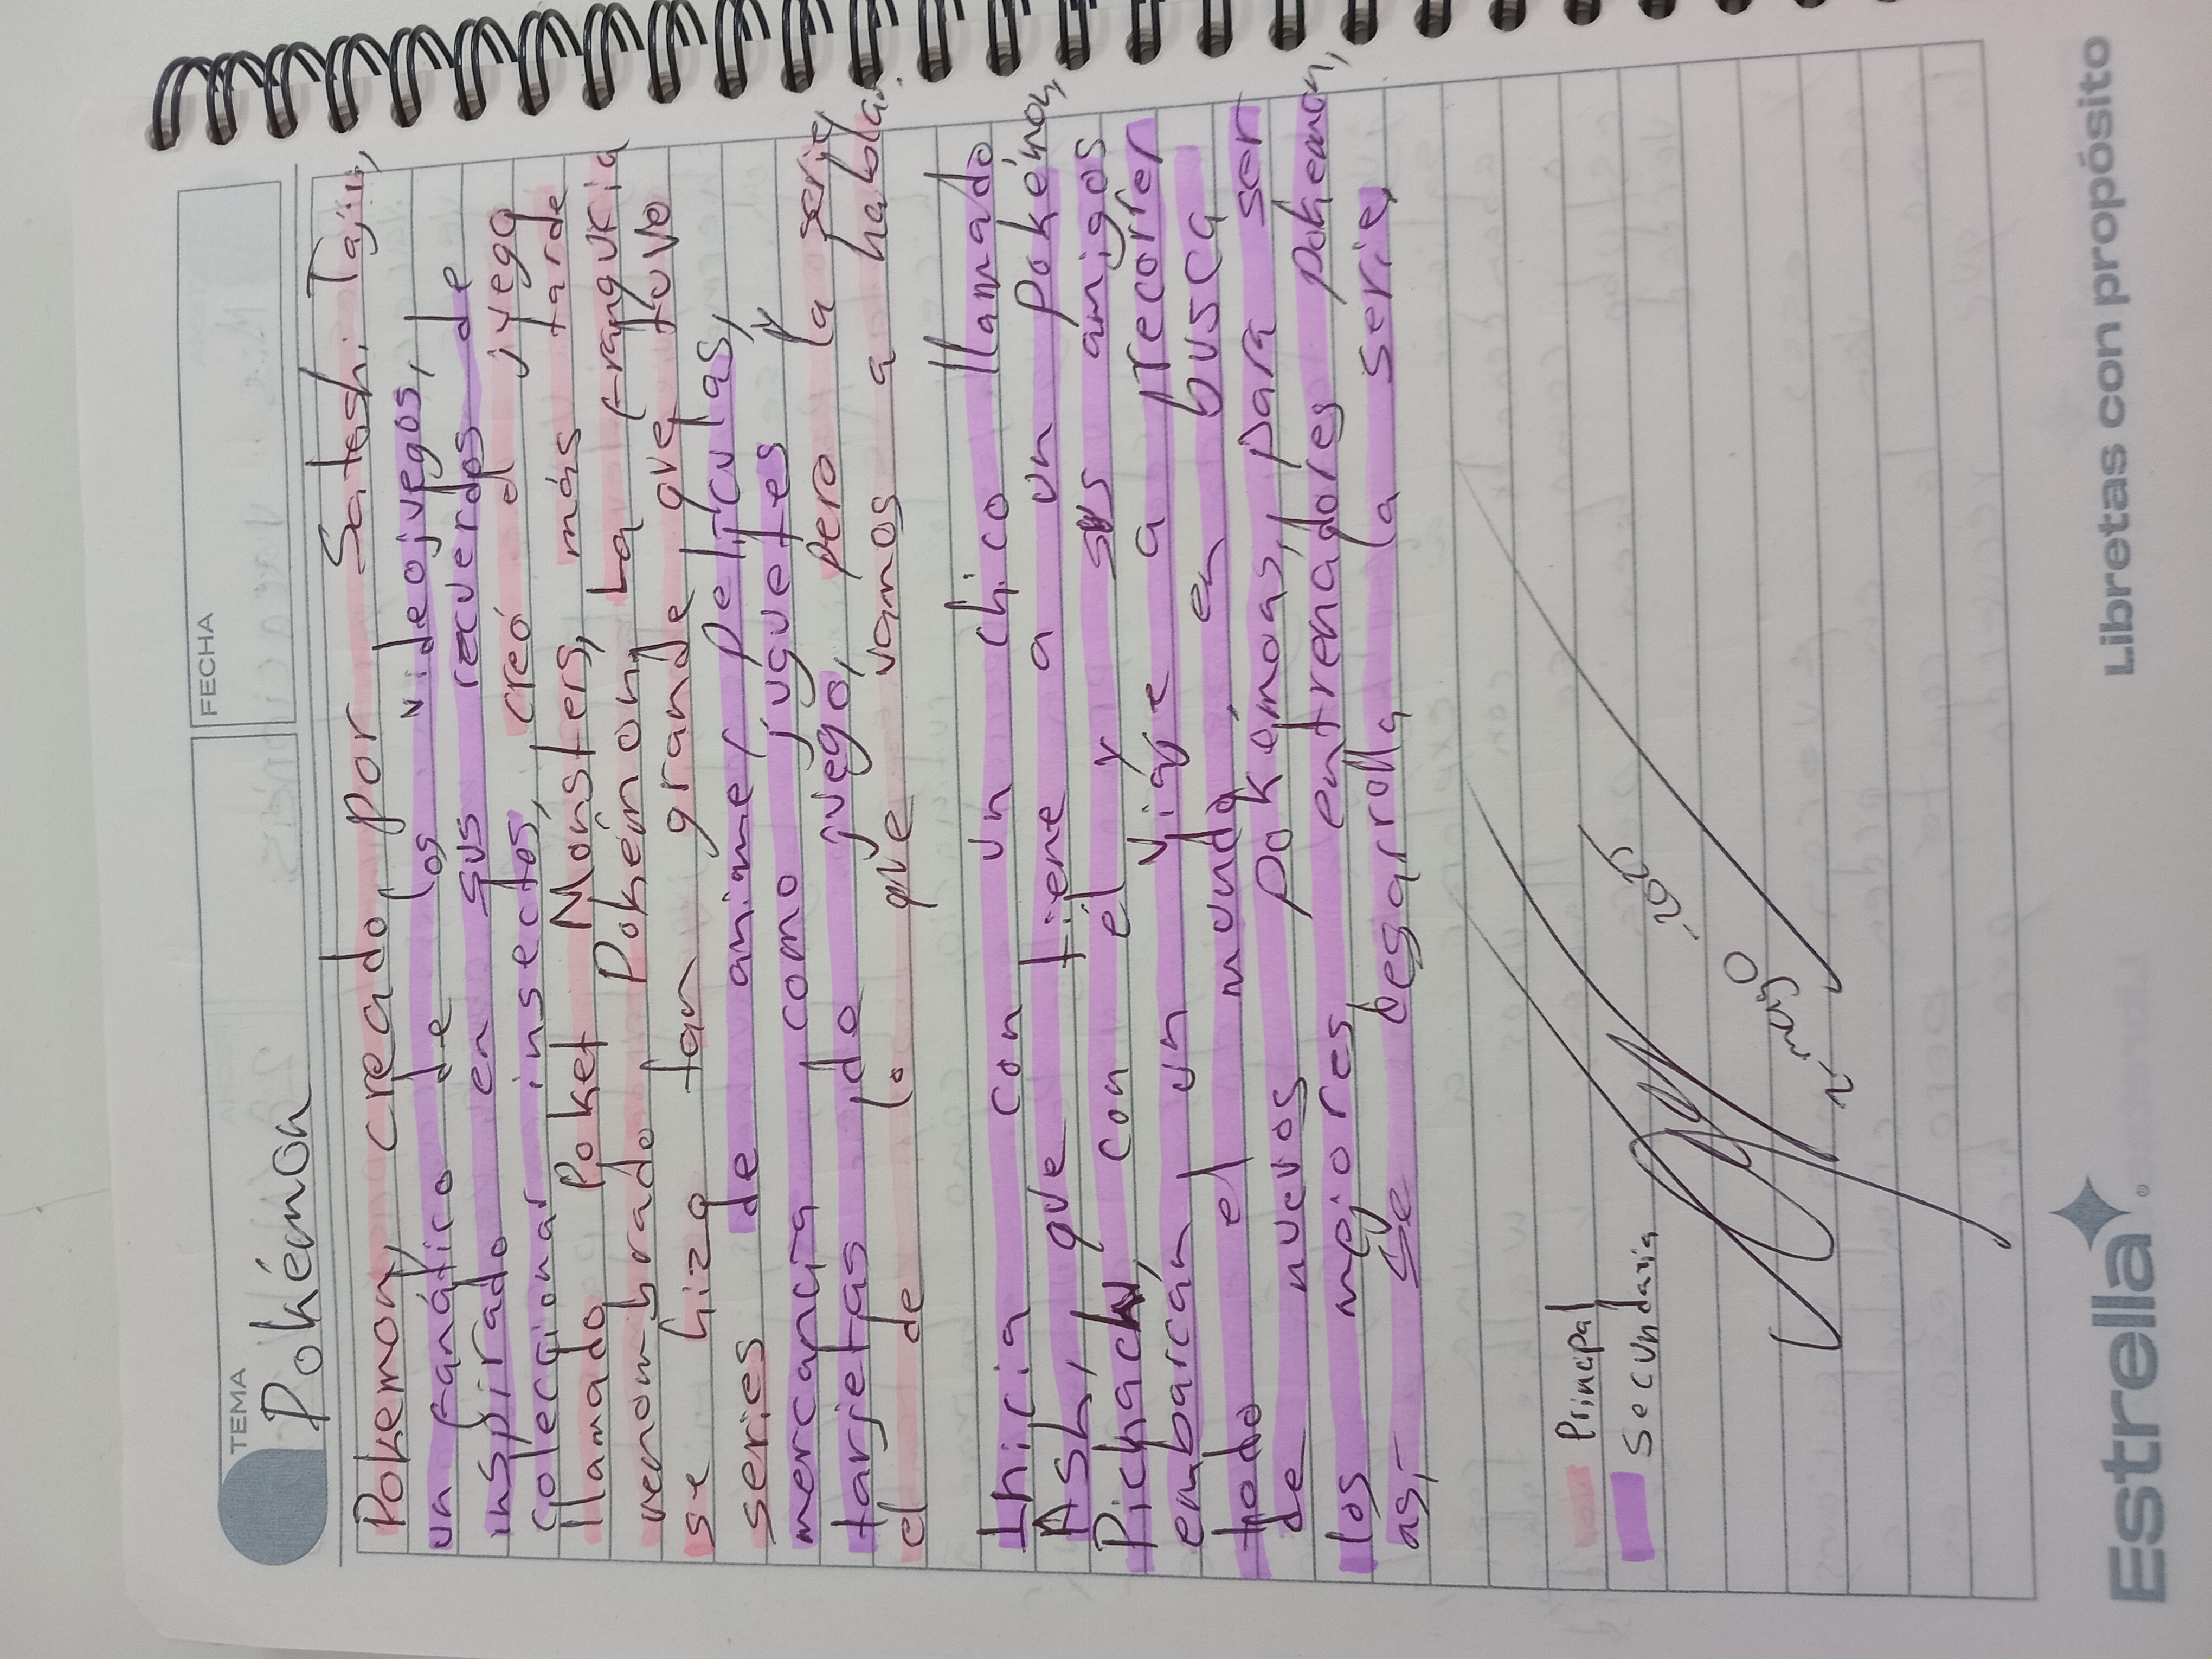 TEMA
FECHA
Pokémon
Pokemon, creado por Satoshi Tajiri,
un fanático de los videojuegos,
inspirado en sus recuerdos de
coleccionar insectos, creó el juego
llamado Poket Monsters, más tarde
renombrado Pokémon, La franquicia
se hizo tan grande que tuvo
series de anime, peliculas,
mercancía como juguetes y
tarjetas do juego, pero la serie
el de lo que vamos a hablar.
Inicia con un chico llamado
Ash, que tiene a un pokémon,
Pichachu, con él y sus amigos
embarcan un viaje a recorrer
todo el mundo, en busca
de nuevos pokémoas, para ser
los mejores entrenadores pokemon,
así se desarrolla la serie,
Principal
Secundaria
2 mayo 2025
Estrella
Libretas con propósito